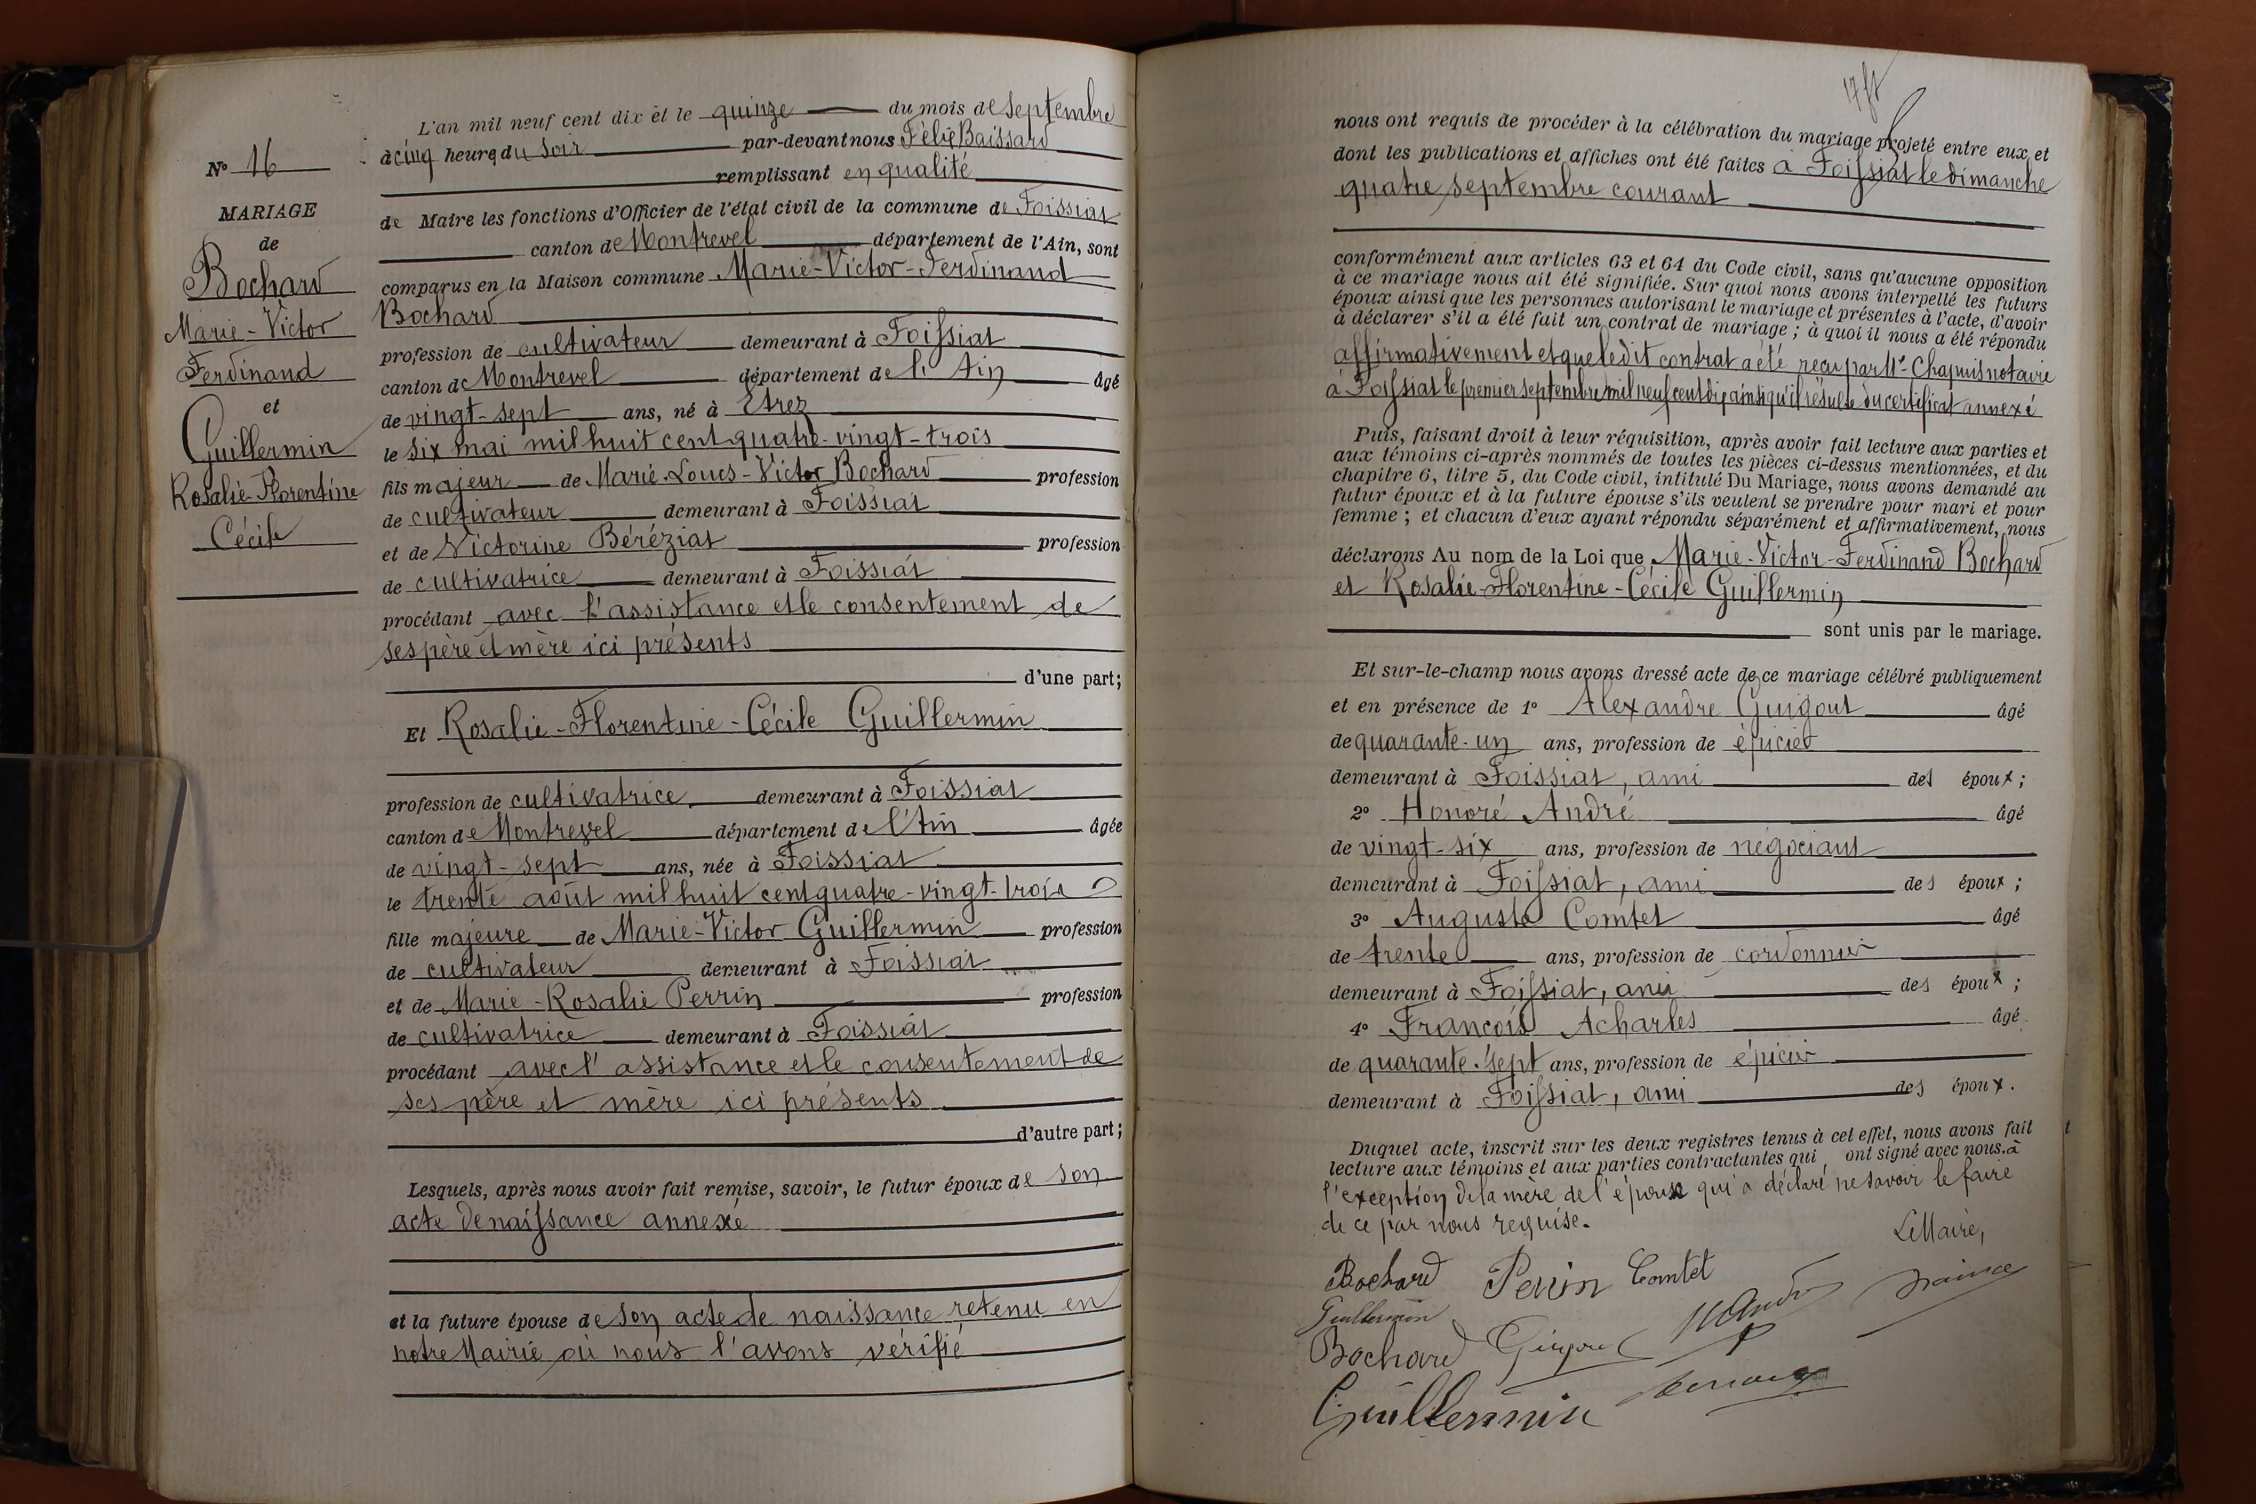 N° 16
MARIAGE
de
Bochard
Marie-Victor
Ferdinand
et
Guillermin
Rosalie-Florentine
Cécile
L'an mil neuf cent dix et le quinze du mois de septembre
à cinq heures du soir par-devant nous Félix Baissard
remplissant en qualité
de Maire les fonctions d'Officier de l'état civil de la commune de Foissiat
canton de Montrevel département de l'Ain, sont
comparus en la Maison commune Marie-Victor-Ferdinand
Bochard
profession de cultivateur demeurant à Foissiat
canton de Montrevel département de l'Ain âgé
de vingt-sept ans, né à Etrez
le six mai mil huit cent quatre-vingt-trois
fils majeur de Marie-Louis-Victor Bochard profession
de cultivateur demeurant à Foissiat
et de Victorine Béréziat profession
de cultivatrice demeurant à Foissiat
procédant avec l'assistance et le consentement de
ses père et mère ici présents
d'une part;
Et Rosalie-Florentine-Cécile Guillermin
profession de cultivatrice demeurant à Foissiat
canton de Montrevel département de l'Ain âgée
de vingt-sept ans, née à Foissiat
le trente août mil huit cent quatre-vingt-trois
fille majeure de Marie-Victor Guillermin profession
de cultivateur demeurant à Foissiat
et de Marie-Rosalie Perrin profession
de cultivatrice demeurant à Foissiat
procédant avec l'assistance et le consentement de
ses père et mère ici présents
d'autre part;
Lesquels, après nous avoir fait remise, savoir, le futur époux de son
acte de naissance annexé
et la future épouse de son acte de naissance retenu en
notre Mairie où nous l'avons vérifié
nous ont requis de procéder à la célébration du mariage projeté entre eux et
dont les publications et affiches ont été faites à Foissiat le dimanche
quatre septembre courant
conformément aux articles 63 et 64 du Code civil, sans qu'aucune opposition
à ce mariage nous ait été signifiée. Sur quoi nous avons interpellé les futurs
époux ainsi que les personnes autorisant le mariage et présentes à l'acte, d'avoir
à déclarer s'il a été fait un contrat de mariage; à quoi il nous a été répondu
affirmativement et que ledit contrat a été reçu par Me Chapuis notaire
à Foissiat le premier septembre mil neuf cent dix ainsi qu'il résulte du certificat annexé
Puis, faisant droit à leur réquisition, après avoir fait lecture aux parties et
aux témoins ci-après nommés de toutes les pièces ci-dessus mentionnées, et du
chapitre 6, titre 5, du Code civil, intitulé Du Mariage, nous avons demandé au
futur époux et à la future épouse s'ils veulent se prendre pour mari et pour
femme; et chacun d'eux ayant répondu séparément et affirmativement, nous
déclarons Au nom de la Loi que Marie-Victor-Ferdinand Bochard
et Rosalie-Florentine-Cécile Guillermin
sont unis par le mariage.
Et sur-le-champ nous avons dressé acte de ce mariage célébré publiquement
et en présence de 1° Alexandre Guigout âgé
de quarante-un ans, profession de épicier
demeurant à Foissiat, ami des époux;
2° Honoré André âgé
de vingt-six ans, profession de négociant
demeurant à Foissiat, ami des époux;
3° Auguste Comtet âgé
de trente ans, profession de cordonnier
demeurant à Foissiat, ami des époux;
4° François Acharles âgé
de quarante-sept ans, profession de épicier
demeurant à Foissiat, ami des époux.
Duquel acte, inscrit sur les deux registres tenus à cet effet, nous avons fait
lecture aux témoins et aux parties contractantes qui ont signé avec nous. à
l'exception de la mère de l'épouse qui a déclaré ne savoir le faire
de ce par nous requise.
Le Maire,
Bochard Perrin Comtet
Guillermin
Bochard
Guillermin